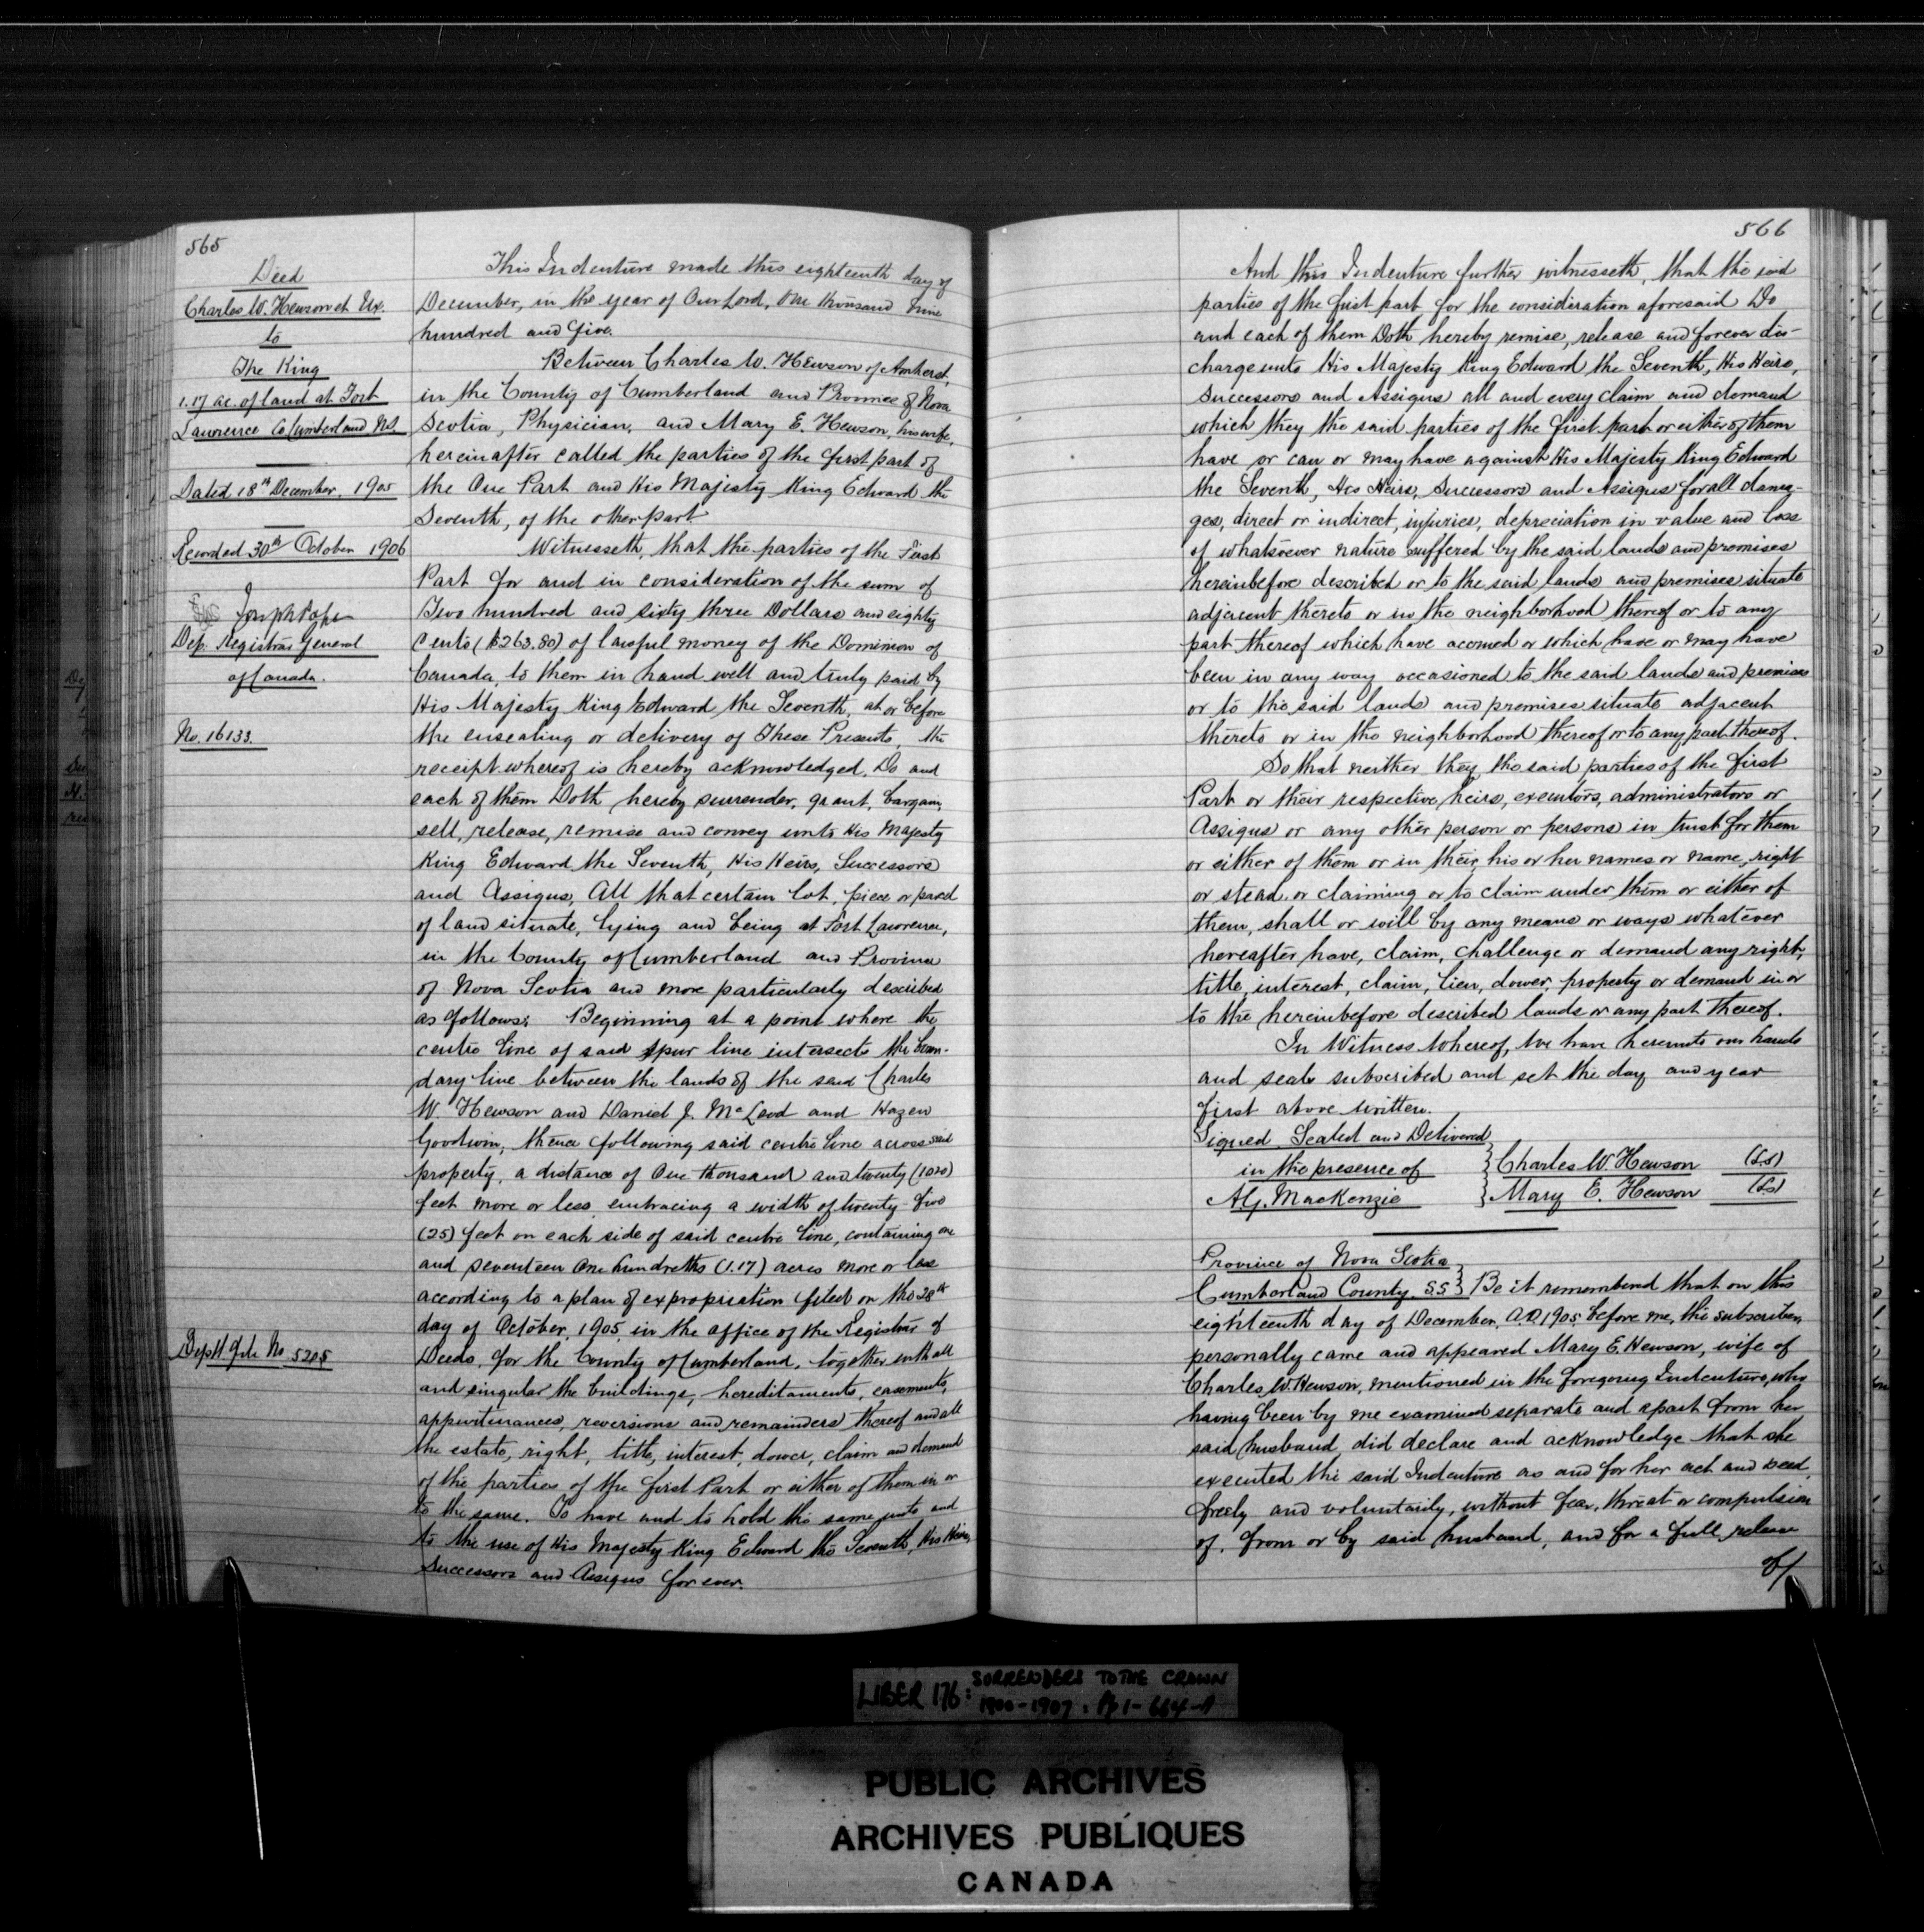 565
Deed
Charles W. Hewson et Ux.
to
The King
1.17 ac. of land at Fort
Lawrence Co Cumberland N.S.
Dated 18th December, 1905
Recorded 30th October 1906
Joseph Pope
Dep. Registrar General
of Canada.
No. 16133.
Dept'l file No 5205
This Indenture made this eighteenth day of
December, in the year of Our Lord, One thousand nine
hundred and five.
Between Charles W. Hewson of Amherst,
in the County of Cumberland and Province of Nova
Scotia, Physician, and Mary E. Hewson, his wife,
hereinafter called the parties of the first part of
the One Part and His Majesty King Edward the
Seventh, of the other part
Witnesseth, that the parties of the First
Part for and in consideration of the sum of
Two hundred and sixty three Dollars and eighty
cents ($263.80) of lawful money of the Dominion of
Canada, to them in hand well and truly paid by
His Majesty King Edward the Seventh, at or before
the ensealing or delivery of These Presents, the
receipt whereof is hereby acknowledged, Do and
each of them Doth hereby surrender, grant, bargain,
sell, release, remise and convey unto His Majesty
King Edward the Seventh, His Heirs, Successors
and Assigns, All that certain lot, piece or parcel
of land situate, lying and being at Fort Lawrence,
in the County of Cumberland and Province
of Nova Scotia and more particularly described
as follows: Beginning at a point where the
centre line of said spur line intersects the boun-
dary line between the lands of the said Charles
W. Hewson and Daniel J. McLeod and Hazen
Goodwin, thence following said centre line across said
property, a distance of One thousand and twenty (1020)
feet more or less embracing a width of twenty-five
(25) feet on each side of said centre line, containing one
and seventeen One hundreths (1.17) acres more or less
according to a plan of expropriation filed on the 28th
day of October, 1905, in the office of the Registrar of
Deeds, for the County of Cumberland, together with all
and singular the buildings, hereditaments, easements,
appurtenances, reversions and remainders thereof and all
the estate, right, title, interest, dower, claim and demand
of the parties of the first Part or either of them in or
to the same. To have and to hold the same unto and
to the use of His Majesty King Edward the Seventh, His Heirs,
Successors and Assigns for ever.
566
And this Indenture further witnesseth, that the said
parties of the first part for the consideration aforesaid Do
and each of them Doth hereby remise, release and forever dis-
charge unto His Majesty King Edward the Seventh, His Heirs,
Successors and Assigns all and every claim and demand
which they the said parties of the first part or either of them
have or can or may have against His Majesty King Edward
the Seventh, His Heirs, Successors and Assigns for all dama-
ges, direct or indirect, injuries, depreciation in value and loss
of whatsoever nature suffered by the said lands and premises
hereinbefore described or to the said lands and premises situate
adjacent thereto or in the neighborhood thereof or to any
part thereof which have accrued or which have or may have
been in any way occasioned to the said lands and premises
or to the said lands and premises situate adjacent
thereto or in the neighborhood thereof or to any part thereof.
So that neither they, the said parties of the first
Part or their respective heirs, executors, administrators or
Assigns or any other person or persons in trust for them
or either of them or in their, his or her names or name, right
or stead, or claiming or to claim under them or either of
them, shall or will by any means or ways whatever
hereafter have, claim, challenge or demand any right,
title, interest, claim, lien, dower, property or demand in or
to the hereinbefore described lands or any part thereof.
In Witness Whereof, We have hereunto our hands
and seals subscribed and set the day and year
first above written.
Signed Sealed and Delivered
in the presence of } Charles W. Hewson (L.S)
A.G. MacKenzie } Mary E. Hewson (L.S)
Province of Nova Scotia
Cumberland County S.S } Be it remembered that on this
eighteenth day of December, A.D. 1905, before me, the subscriber,
personally came and appeared Mary E. Hewson, wife of
Charles W. Hewson, mentioned in the foregoing Indenture, who
having been by me examined separate and apart from her
said husband, did declare and acknowledge that she
executed the said Indenture as and for her act and deed,
freely and voluntarily, without fear, threat or compulsion
of, from or by said husband, and for a full release
of/
LIBER 176: SURRENDERS TO THE CROWN
1900-1907: Pp 1-664-A
PUBLIC ARCHIVES
ARCHIVES PUBLIQUES
CANADA